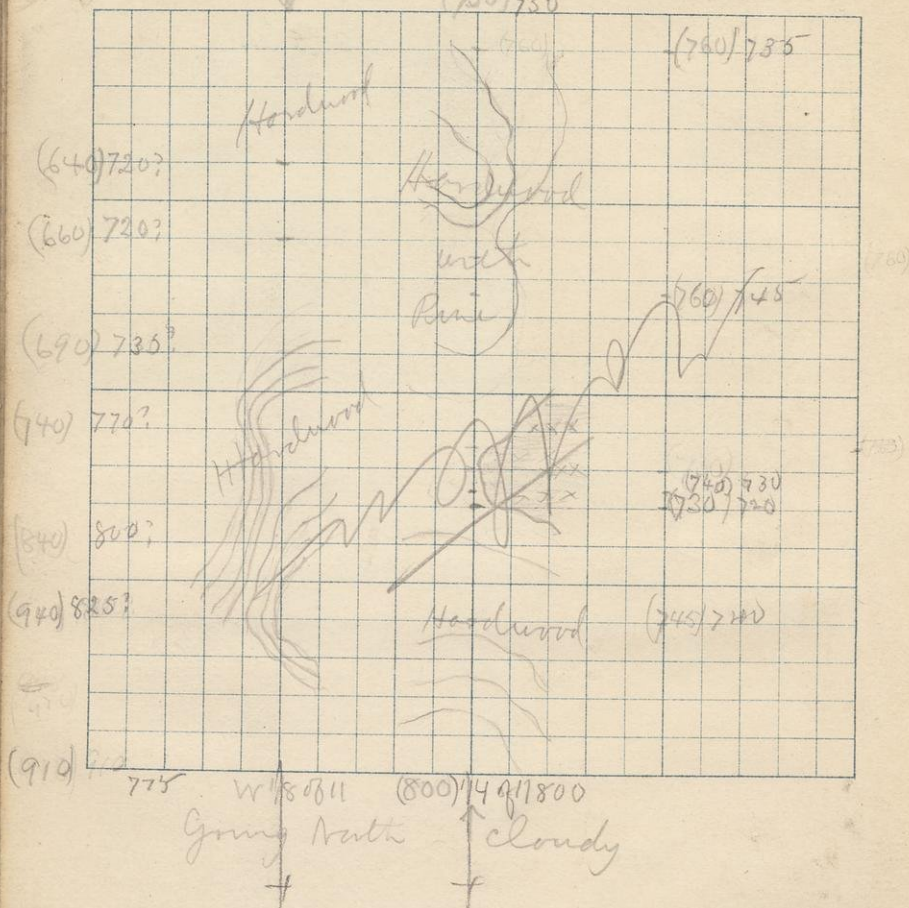 (760) 735
Hardwood
(640) 720?
Hardwood
(660) 720?
with
Pine
(760) 745
(690) 735?
(740) 770?
Hardwood
x x x
x x
x x x
(740) 730
(730) 720
(840) 800?
(940) 825?
Hardwood
(745) 740
(910) 910
775
W 1/8 of 11
(800) 1/4 of 11 800
Going North
Cloudy